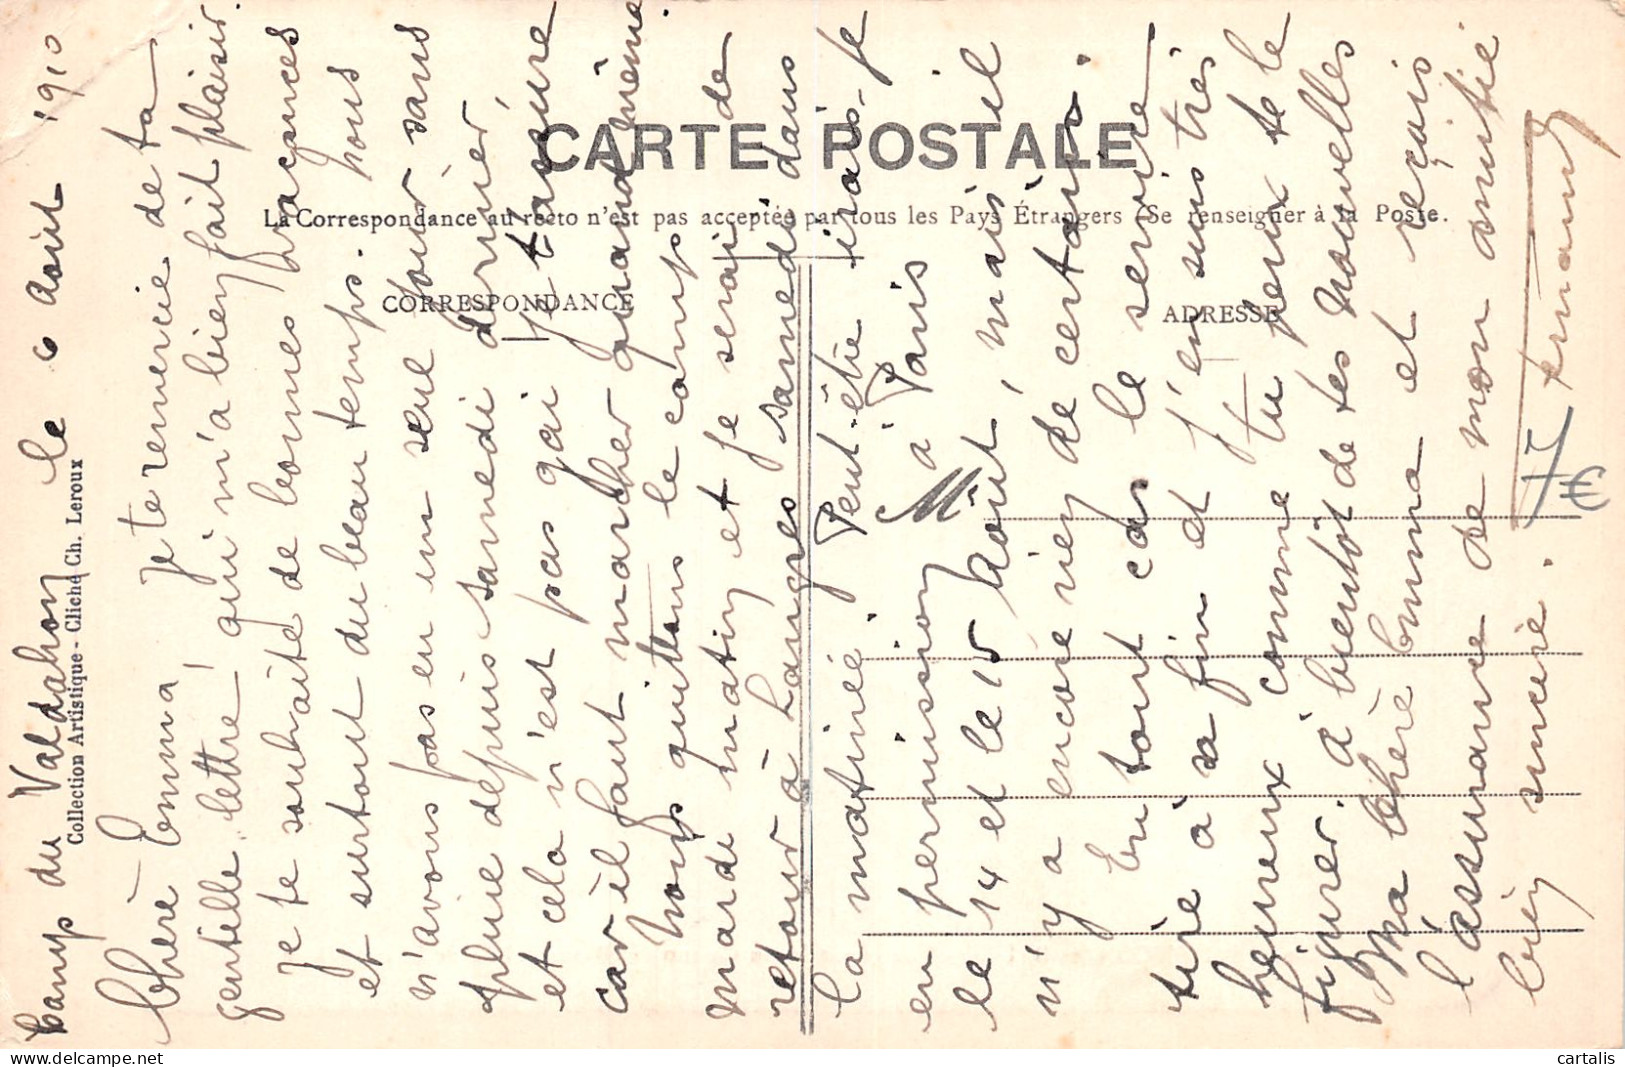 Camp du Valdahon le 6 Août 1910
Chère Emma
Je te remercie de ta
gentille lettre, qui m'a bien fait plaisir.
Je te souhaite de bonnes vacances
et surtout du beau temps. Nous
n'avons pas eu un seul jour sans
pluie depuis samedi dernier,
et cela n'est pas gai je t'assure
car il faut marcher quand même
Nous quittons le camp
mardi matin et je serai de
retour à Langres samedi dans
la matinée. Peut-être irais-je
en permission à Paris
le 14 et le 15 Août, mais il
n'y a encore rien de certain.
En tout cas le service
tire à sa fin et j'en suis très
heureux comme tu peux te le
figurer. A bientôt de tes nouvelles
Ma chère Emma et reçois
l'assurance de mon amitié
bien sincère.
CARTE POSTALE
La Correspondance au recto n'est pas acceptée par tous les Pays Étrangers (Se renseigner à la Poste.
CORRESPONDANCE
ADRESSE
M
Collection Artistique - Cliché Ch. Leroux
€
cartalis